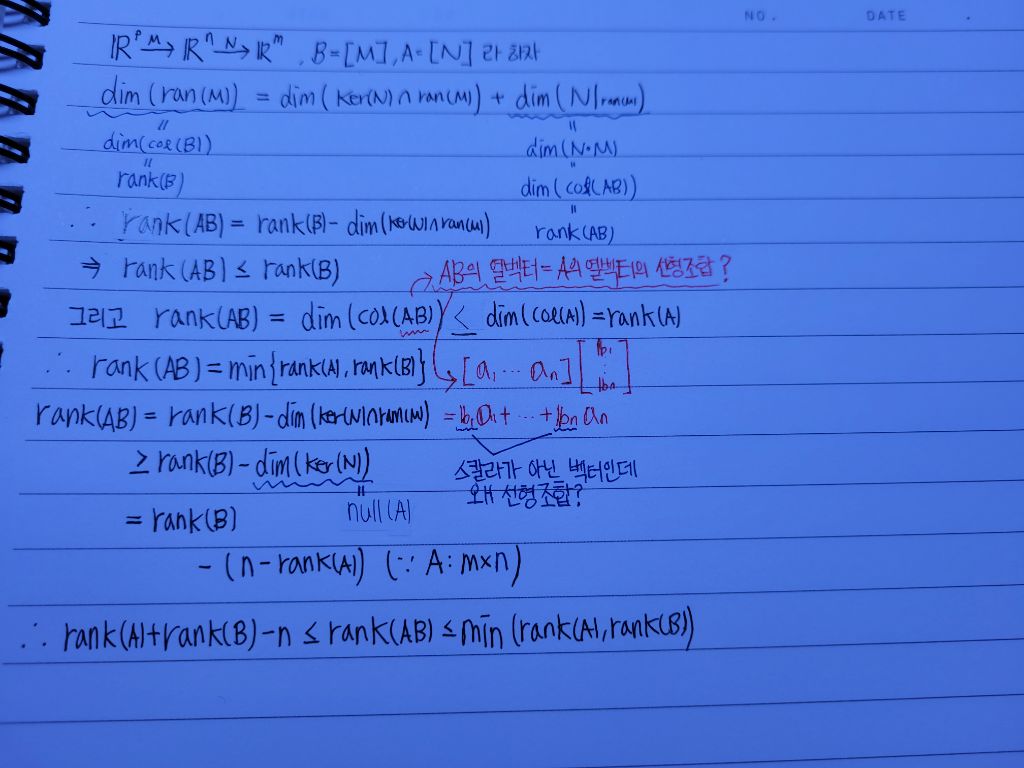 NO. DATE .
ℝᵖ —M→ ℝⁿ —N→ ℝᵐ , B=[M], A=[N] 라 하자
dim(ran(M)) = dim(ker(N)∩ran(M)) + dim(N|ran(M))
= =
dim(col(B)) dim(N∘M)
= =
rank(B) dim(col(AB))
=
∴ rank(AB) = rank(B) - dim(ker(N)∩ran(M)) rank(AB)
⇒ rank(AB) ≤ rank(B) → AB의 열벡터 = A의 열벡터의 선형조합?
그리고 rank(AB) = dim(col(AB)) ≤ dim(col(A)) = rank(A)
∴ rank(AB) = min{rank(A), rank(B)} → [a₁ ⋯ aₙ] [b₁ ⋮ bₙ]
rank(AB) = rank(B) - dim(ker(N)∩ran(M)) = b₁a₁ + ⋯ + bₙaₙ
≥ rank(B) - dim(ker(N)) 스칼라가 아닌 벡터인데
= 왜 선형조합?
null(A)
= rank(B)
- (n - rank(A)) (∵ A: m×n)
∴ rank(A)+rank(B)-n ≤ rank(AB) ≤ min(rank(A), rank(B))